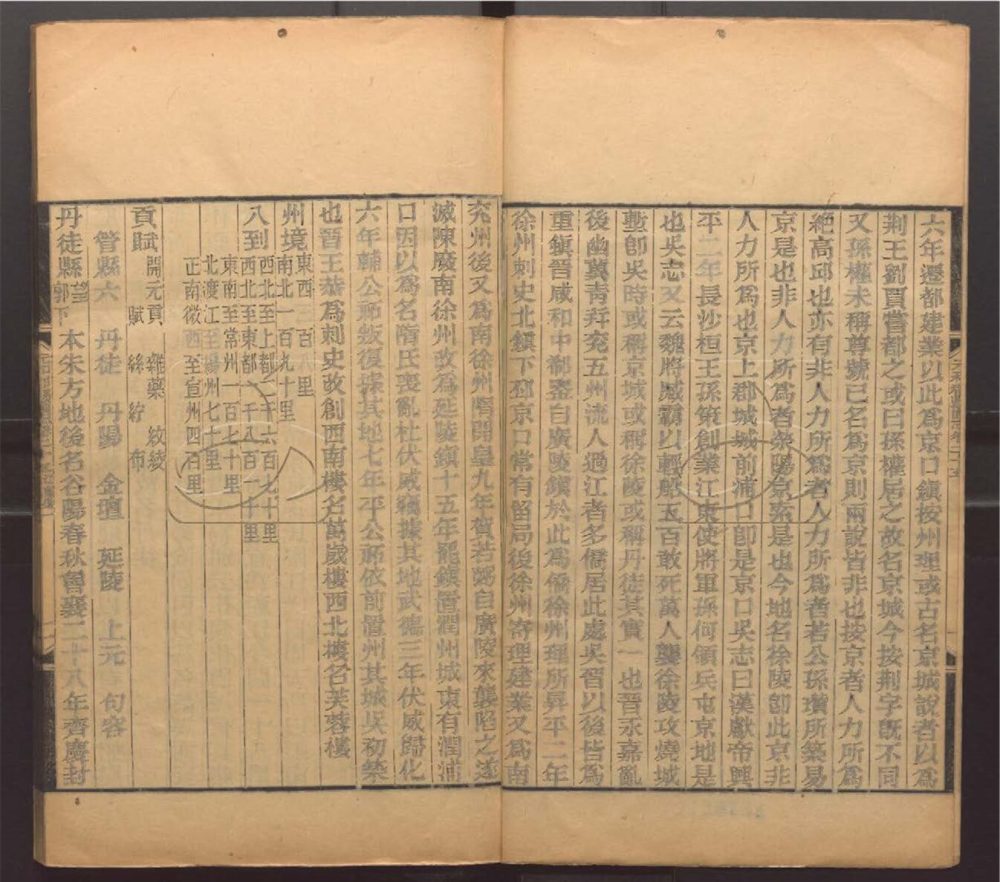 六年遷都建業以此為京口鎮按州理或古名京城說者以為
荆王劉賈嘗都之或曰孫權居之故名京城今按荆字旣不同
又孫權未稱尊號已名為京則兩說皆非也按京者人力所為
絕高邱也亦有非人力所為者人力所為者若公孫瓚所築易
京是也非人力所為者滎陽京索是也今地名徐陵卽此京非
人力所為也京上郡城城前浦口卽是京口吳志曰漢獻帝興
平二年長沙桓王孫策創業江東使將軍孫何領兵屯京地是
也吳志又云魏將臧霸以輕船五百敢死萬人襲徐陵攻燒城
塹卽吳時或稱京城或稱徐陵或稱丹徒其實一也晉永嘉亂
後幽冀青幷兗五州流人過江者多僑居此處吳晉以後皆為
重鎮晉咸和中郗鑒自廣陵鎮於此為僑徐州理所昇平二年
徐州刺史北鎮下邳京口常有留局後徐州寄理建業又為南
兖州後又為南徐州隋開皇九年賀若弼自廣陵來襲陷之遂
滅陳廢南徐州改為延陵鎮十五年罷鎮置潤州城東有潤浦
口因以為名隋氏喪亂杜伏威竊據其地武德三年伏威歸化
六年輔公祏叛復據其地七年平公祏依前置州其城吳初築
也晉王恭為刺史改創西南樓名萬歲樓西北樓名芙蓉樓
州境東西三百八里
南北一百九十里
八到西北至上都二千六百七十里
西北至東都一千八百一十里
東南至常州一百七十里
北渡江至揚州七十里
正南微西至宣州四百里
貢賦開元貢 雜藥 紋綾
賦 絲 紵 布
管縣六 丹徒 丹陽 金壇 延陵 上元 句容
丹徒縣望
郭下 本朱方地後名谷陽春秋魯襄二十八年齊慶封